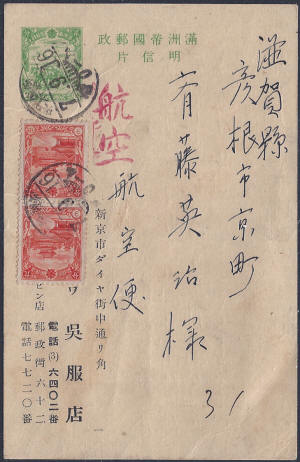 滿洲帝國郵政
明信片
滋賀縣
彦根市京町
斉藤英治様
航空便
航空
31
新京市ダイヤ街中通り角
ワ 呉服店
電話(3)六四〇二番
ビン店
郵政街六十二
電話七七二〇番